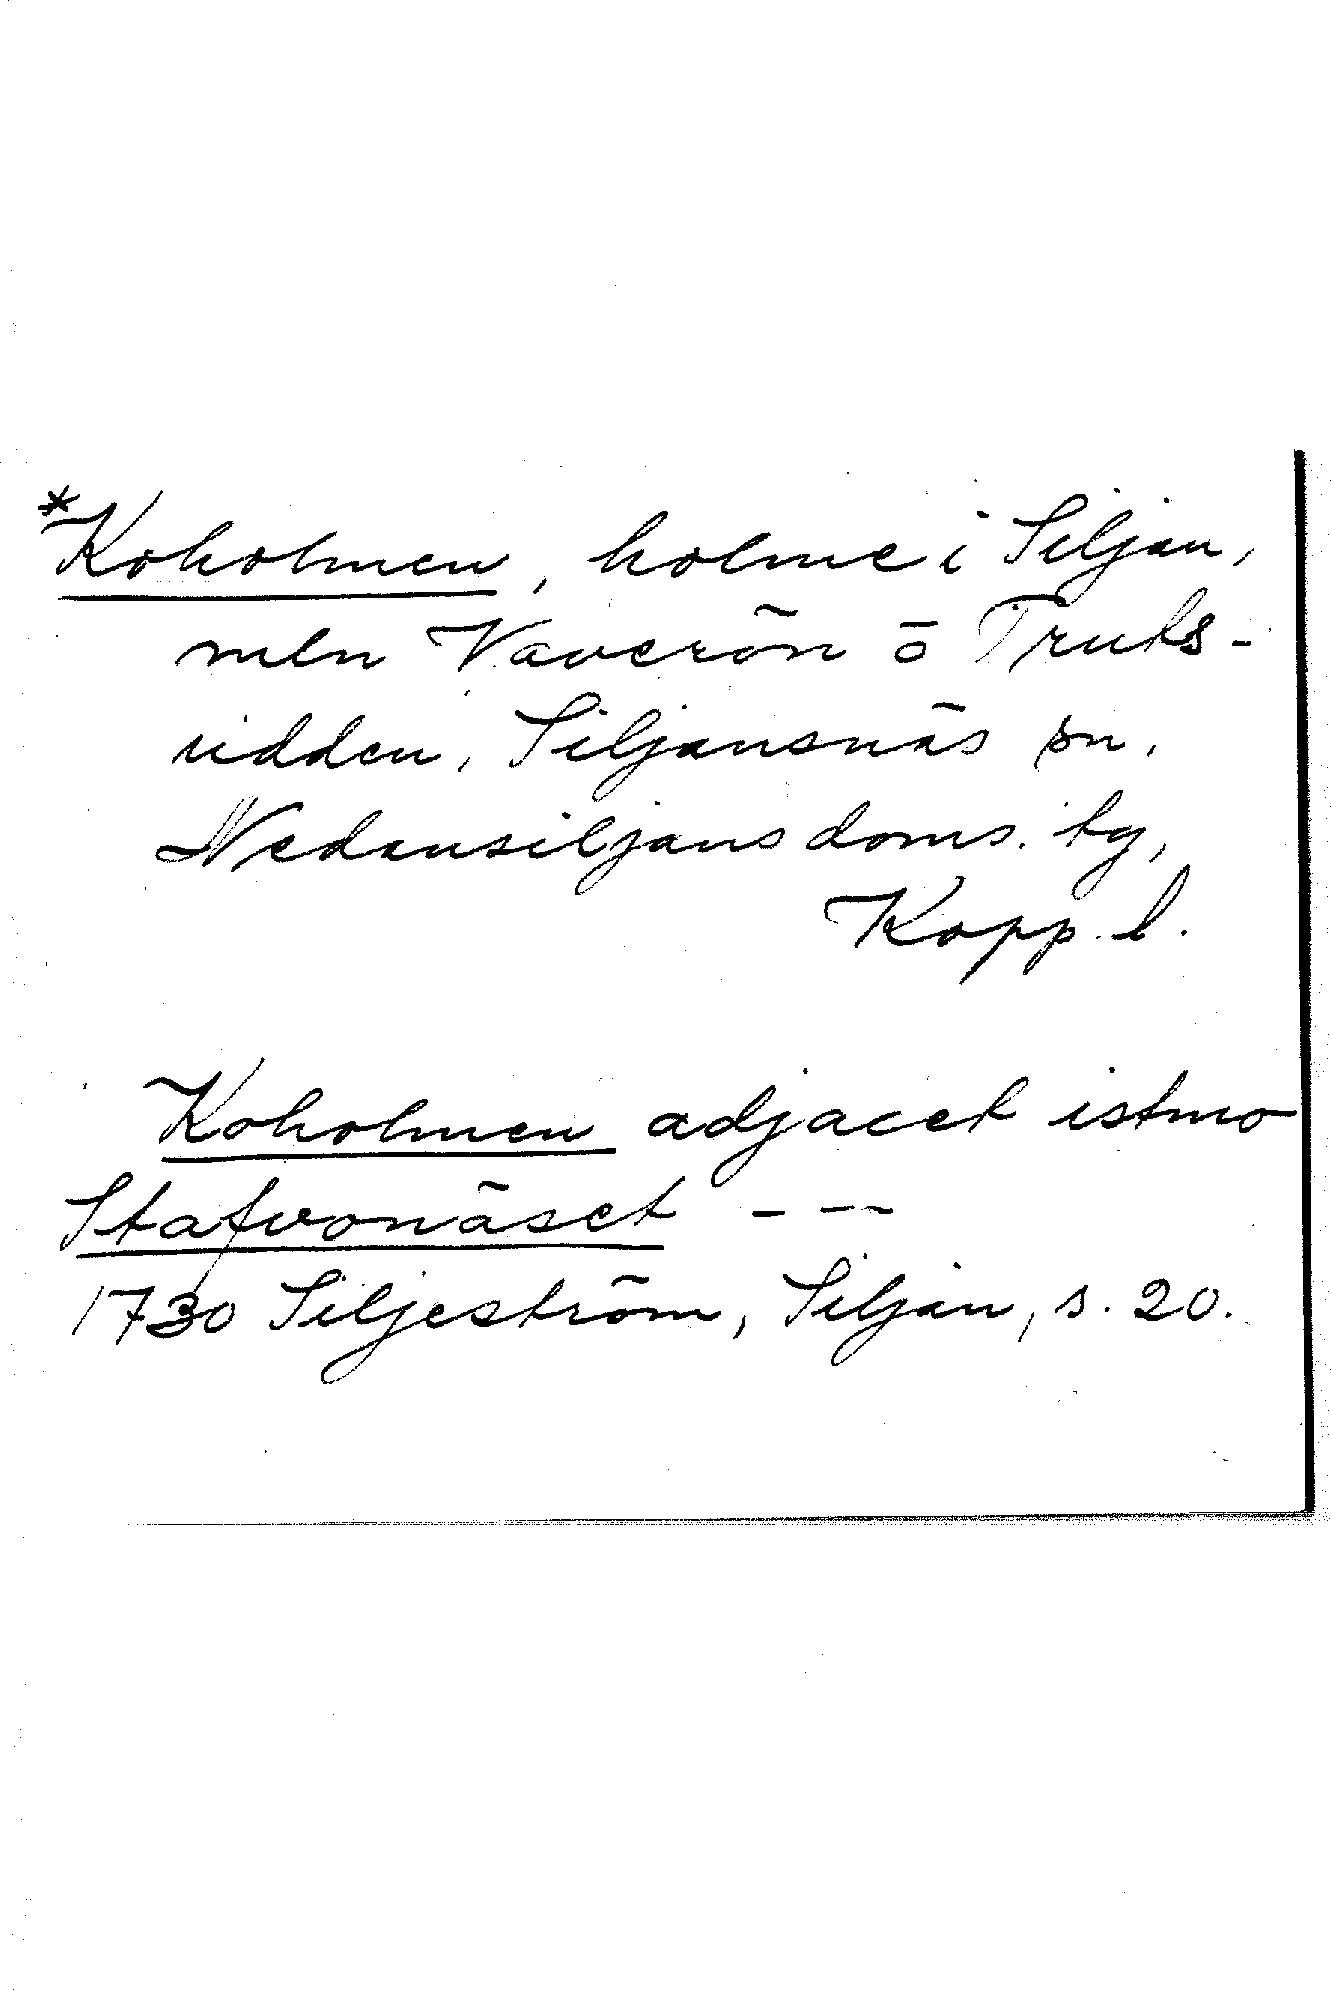 *Koholmen, holme i Siljan,
mln Vaverön o Truts-
udden, Siljansnäs sn,
Nedansiljans doms. tg,
Kopp. l.
Koholmen adjacet istmo
Stafvonäset - - -
1730 Siljeström, Siljan, s. 20.